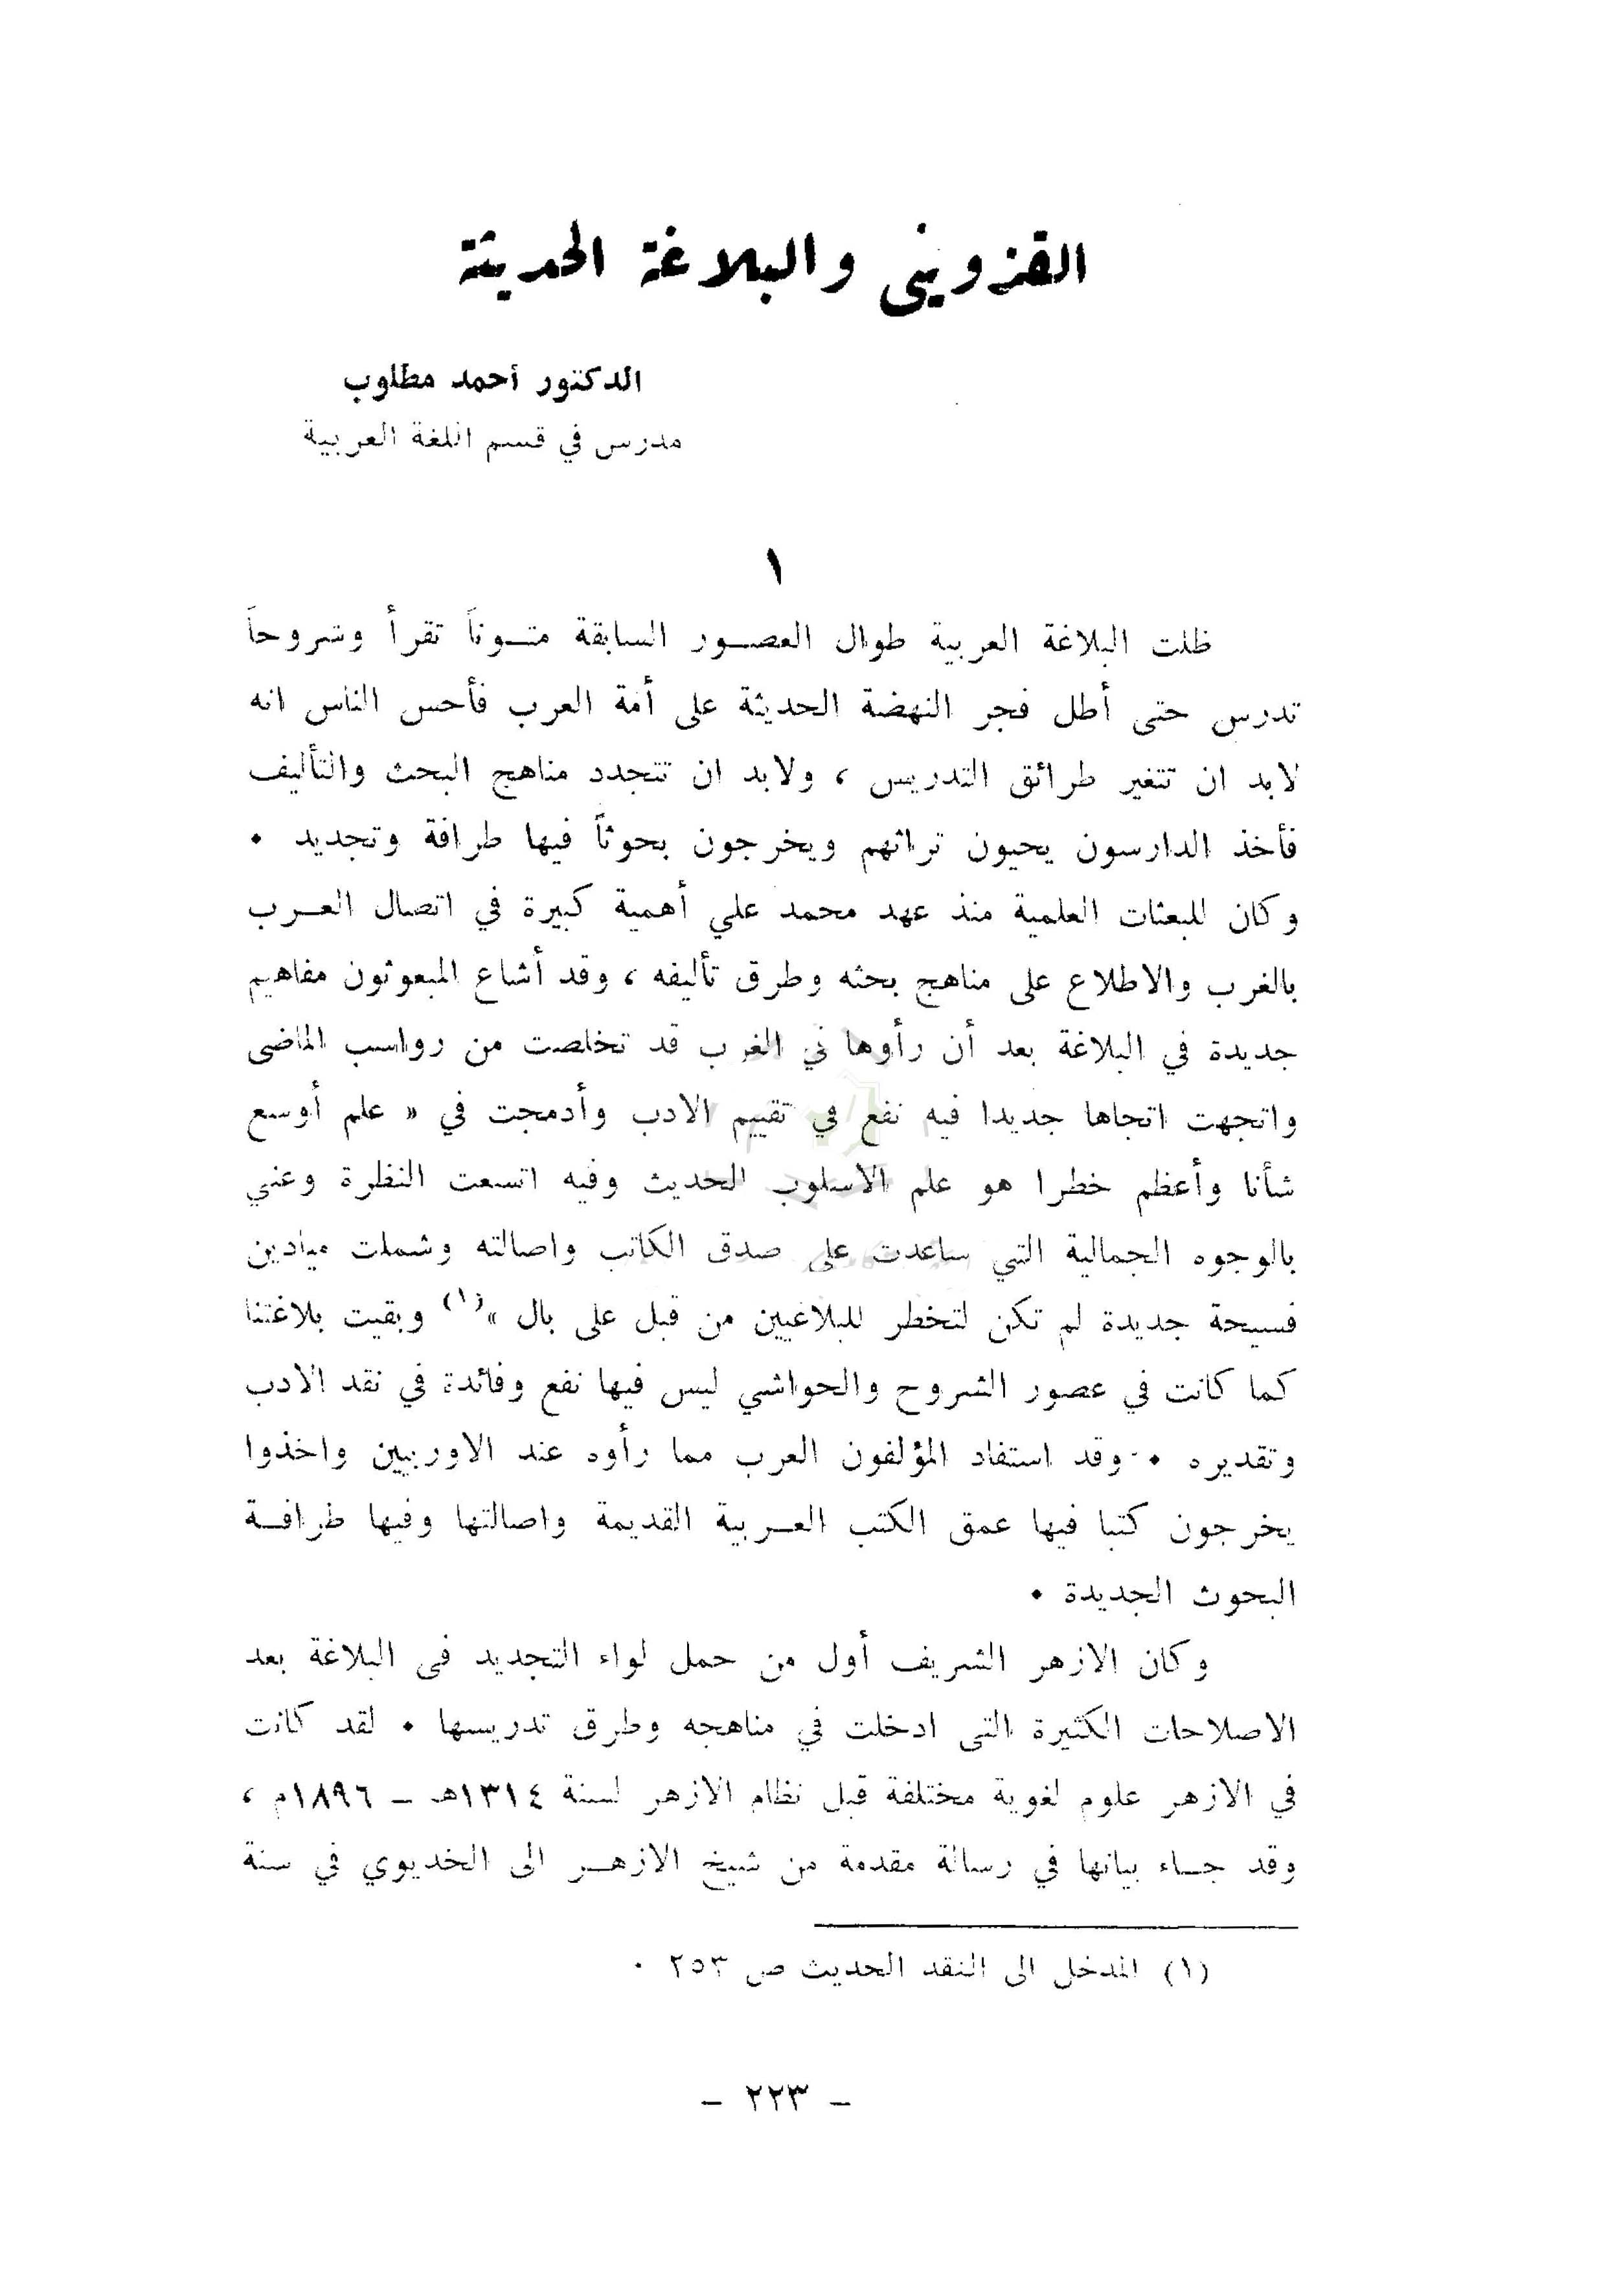 القزويني والبلاغة الحديثة
الدكتور أحمد مطلوب
مدرس في قسم اللغة العربية
١
ظلت البلاغة العربية طوال العصور السابقة متوناً تقرأ وشروحاً
تدرس حتى أطل فجر النهضة الحديثة على أمة العرب فأحس الناس انه
لابد ان تتغير طرائق التدريس ، ولابد ان تتجدد مناهج البحث والتأليف
فأخذ الدارسون يحيون تراثهم ويخرجون بحوثاً فيها طرافة وتجديد ٠
وكان للبعثات العلمية منذ عهد محمد علي أهمية كبيرة في اتصال العرب
بالغرب والاطلاع على مناهج بحثه وطرق تأليفه ، وقد أشاع المبعوثون مفاهيم
جديدة في البلاغة بعد أن رأوها في الغرب قد تخلصت من رواسب الماضى
واتجهت اتجاها جديدا فيه نفع في تقييم الادب وأدمجت في « علم أوسع
شأنا وأعظم خطرا هو علم الاسلوب الحديث وفيه اتسعت النظرة وعني
بالوجوه الجمالية التي ساعدت على صدق الكاتب واصالته وشملت ميادين
فسيحة جديدة لم تكن لتخطر للبلاغيين من قبل على بال »(١) وبقيت بلاغتنا
كما كانت في عصور الشروح والحواشي ليس فيها نفع وفائدة في نقد الادب
وتقديره ٠ وقد استفاد المؤلفون العرب مما رأوه عند الاوربيين واخذوا
يخرجون كتبا فيها عمق الكتب العربية القديمة واصالتها وفيها طرافة
البحوث الجديدة ٠
وكان الازهر الشريف أول من حمل لواء التجديد فى البلاغة بعد
الاصلاحات الكثيرة التى ادخلت في مناهجه وطرق تدريسها ٠ لقد كانت
في الازهر علوم لغوية مختلفة قبل نظام الازهر لسنة ١٣١٤هـ – ١٨٩٦م ،
وقد جاء بيانها في رسالة مقدمة من شيخ الازهر الى الخديوي في سنة
(١) المدخل الى النقد الحديث ص ٢٥٣ ٠
– ٢٢٣ –